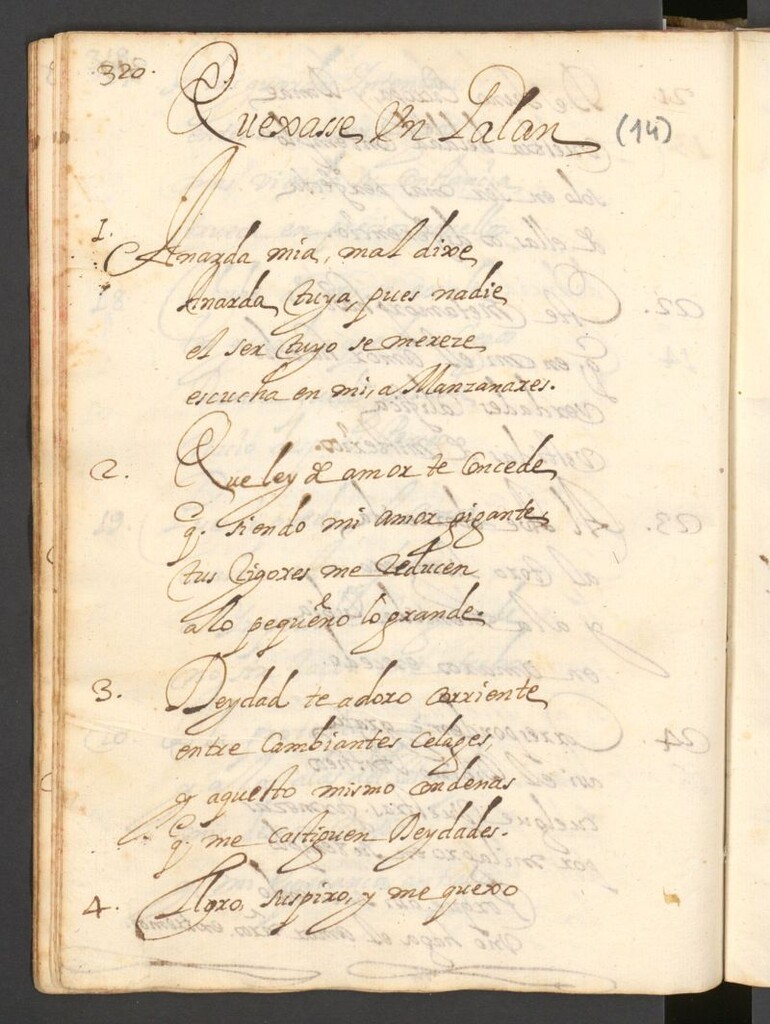 320.
Quexasse Vn Galan (14)
1. Anarda mia, mal dixe
Anarda tuya, pues nadie
el ser tuyo se mereze
escucha en mi, a Manzanares.
2. Que ley de amor te Concede
q. siendo mi amor gigante
tus Rigores me Reducen
a lo pequeño lo grande.
3. Deydad te adoro Corriente
entre Cambiantes Celages,
y aquesto mismo Condenas
q. me Castiguen Deydades.
4. Lloro, suspiro, y me quexo